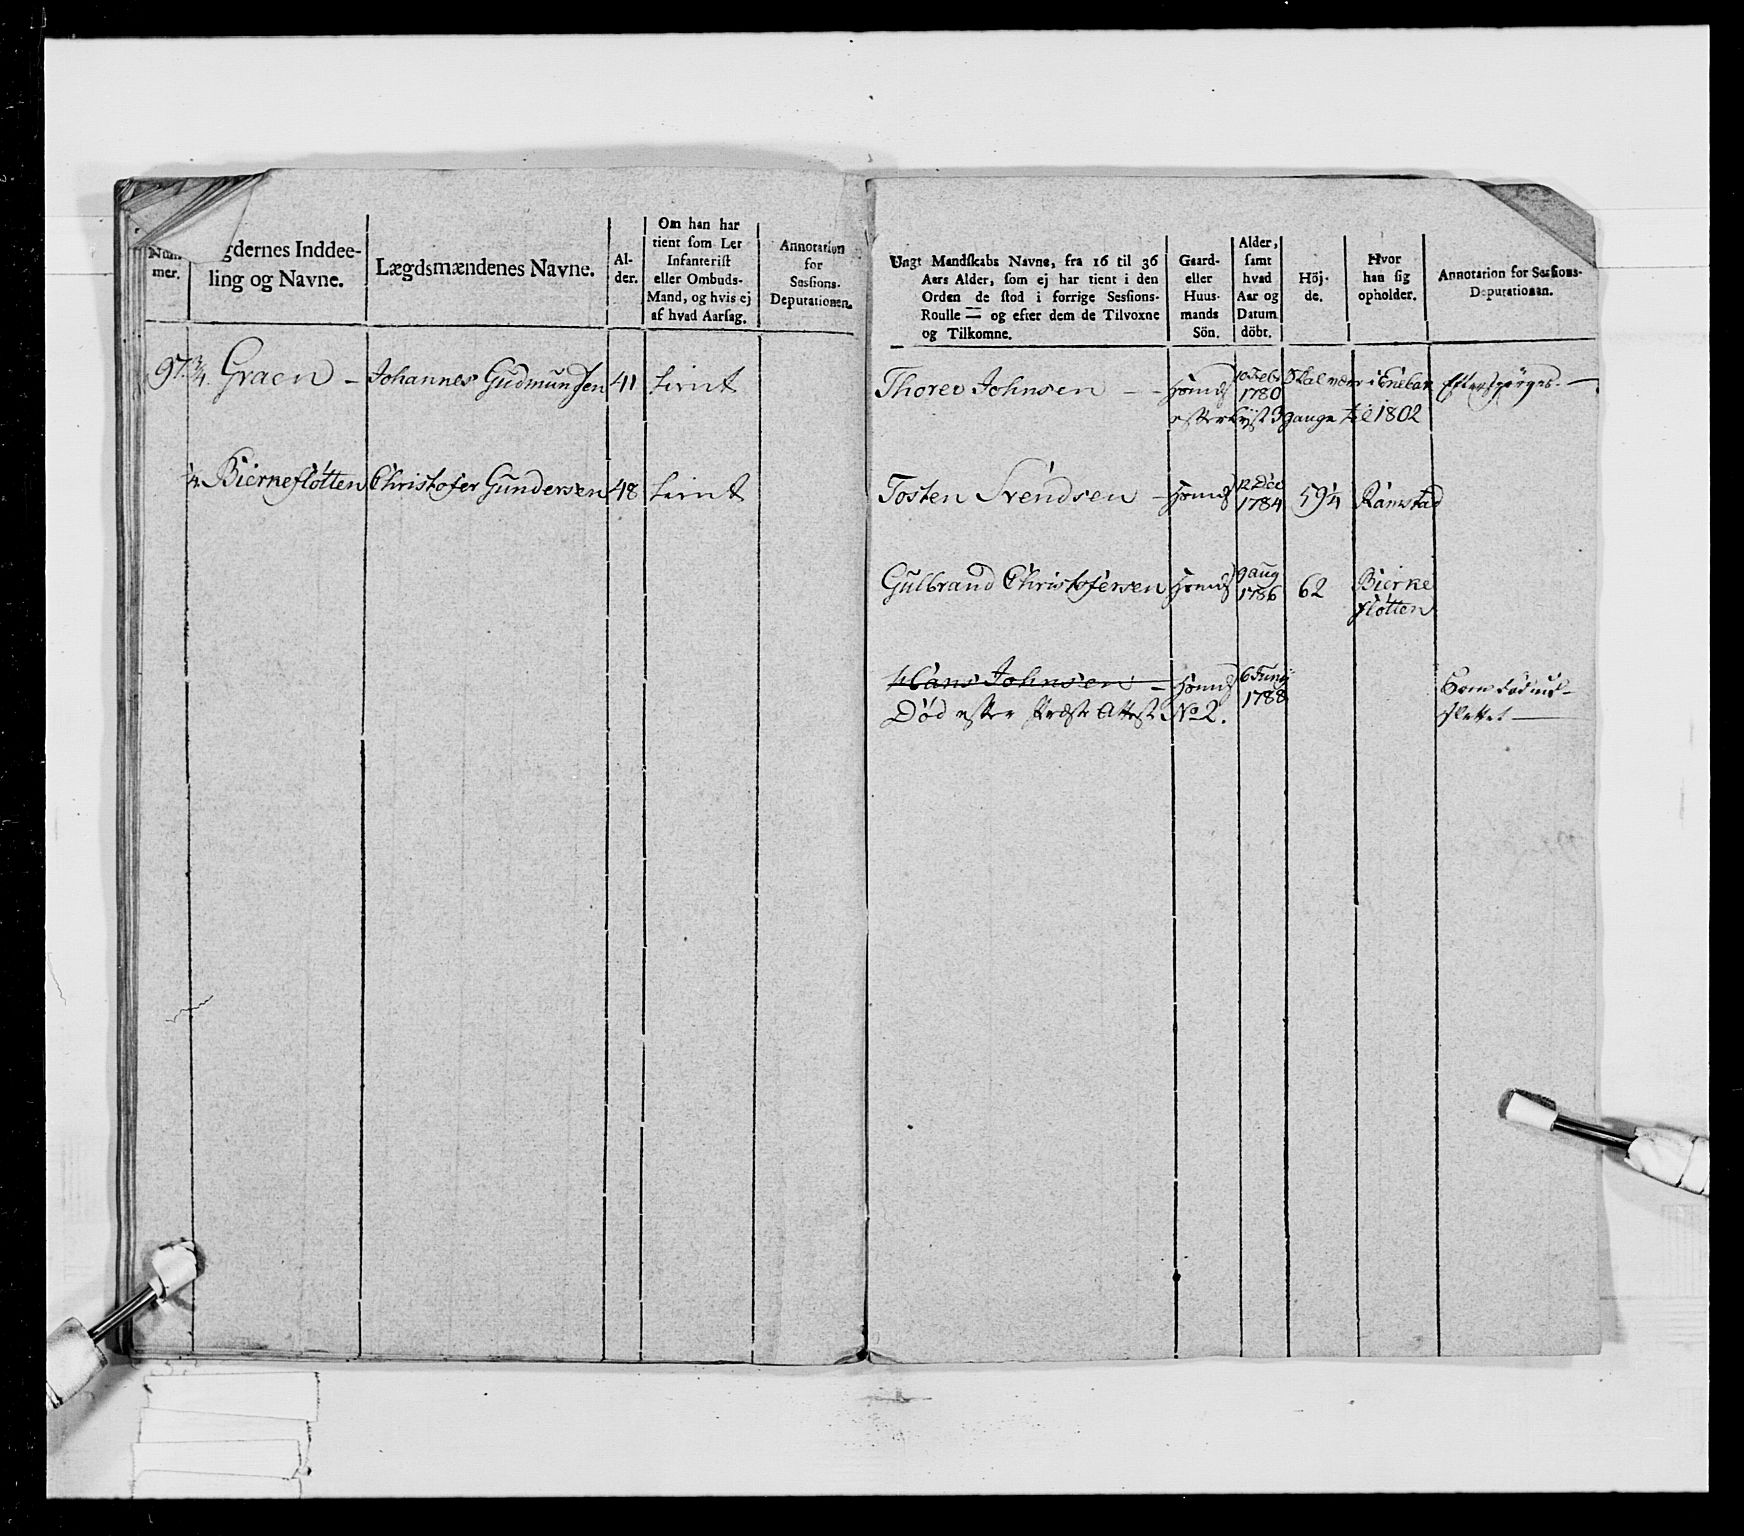 Num-
mer.
gdernes Inddee-
ling og Navne.
Lægdsmændenes Navne.
Al-
der.
Om han har
tient som Let
Infanterist
eller Ombuds-
Mand, og hvis ej
af hvad Aarsag.
Annotation
for
Sessions-
Deputationen.
97. 3/4 Graen - Johannes Gudmundsen 41 tient
1/4 Bierkefløtten Christofer Gundersen 48 tient
Ungt Mandskabs Navne, fra 16 til 36
Aars Alder, som ej har tient i den
Orden de stod i forrige Sessions-
Roulle = og efter dem de Tilvoxne
og Tilkomne.
Gaard-
eller
Huus-
mands
Sön.
Alder,
samt
hvad
Aar og
Datum
döbt.
Höj-
de.
Hvor
han sig
opholder.
Annotation for Sessions-
Deputationen.
Thorer Johnsen - 10 Febr 1780 Skal være i Enebak Efterspörges. -
efterlyst 3 gange til 1802
Tosten Svendsen - 12 Dec 1784 59 1/4 Ramstad
Gulbrand Christofersen 9 Aug 1786 62 Bierke
fløtten
Hans Johnsen - 6 Junij 1788 Som død ud-
Død efter Præste Attest No 2. slettet -